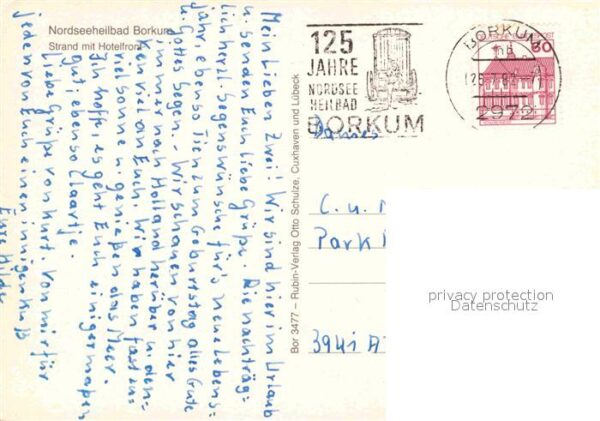 Nordseeheilbad Borkum
Strand mit Hotelfront
Mein Lieben Zwei! Wir sind hier im Urlaub
u. senden Euch liebe Grüße. Die nachträg-
lich herzl. Segenswünsche für's neue Lebens-
jahr, ebenso Tien zum Geburtstag alles Gute
u. Gottes Segen. – Wir schauen von hier
immer nach Holland herüber u. den-
ken viel an Euch. Wir haben fast zu-
viel Sonne u. genießen das Meer.
Ich hoffe, es geht Euch einigermaßen
gut, ebenso Klaartje.
Liebe Grüße von Kurt. Von mir für
jeden von Euch einen innigen Kuß
Eure Hilde
Bor 3477 – Rubin-Verlag Otto Schulze, Cuxhaven und Lübeck
125
JAHRE
NORDSEE
HEILBAD
BORKUM
BORKUM
60
2972
C. u.
Park
3941
privacy protection
Datenschutz